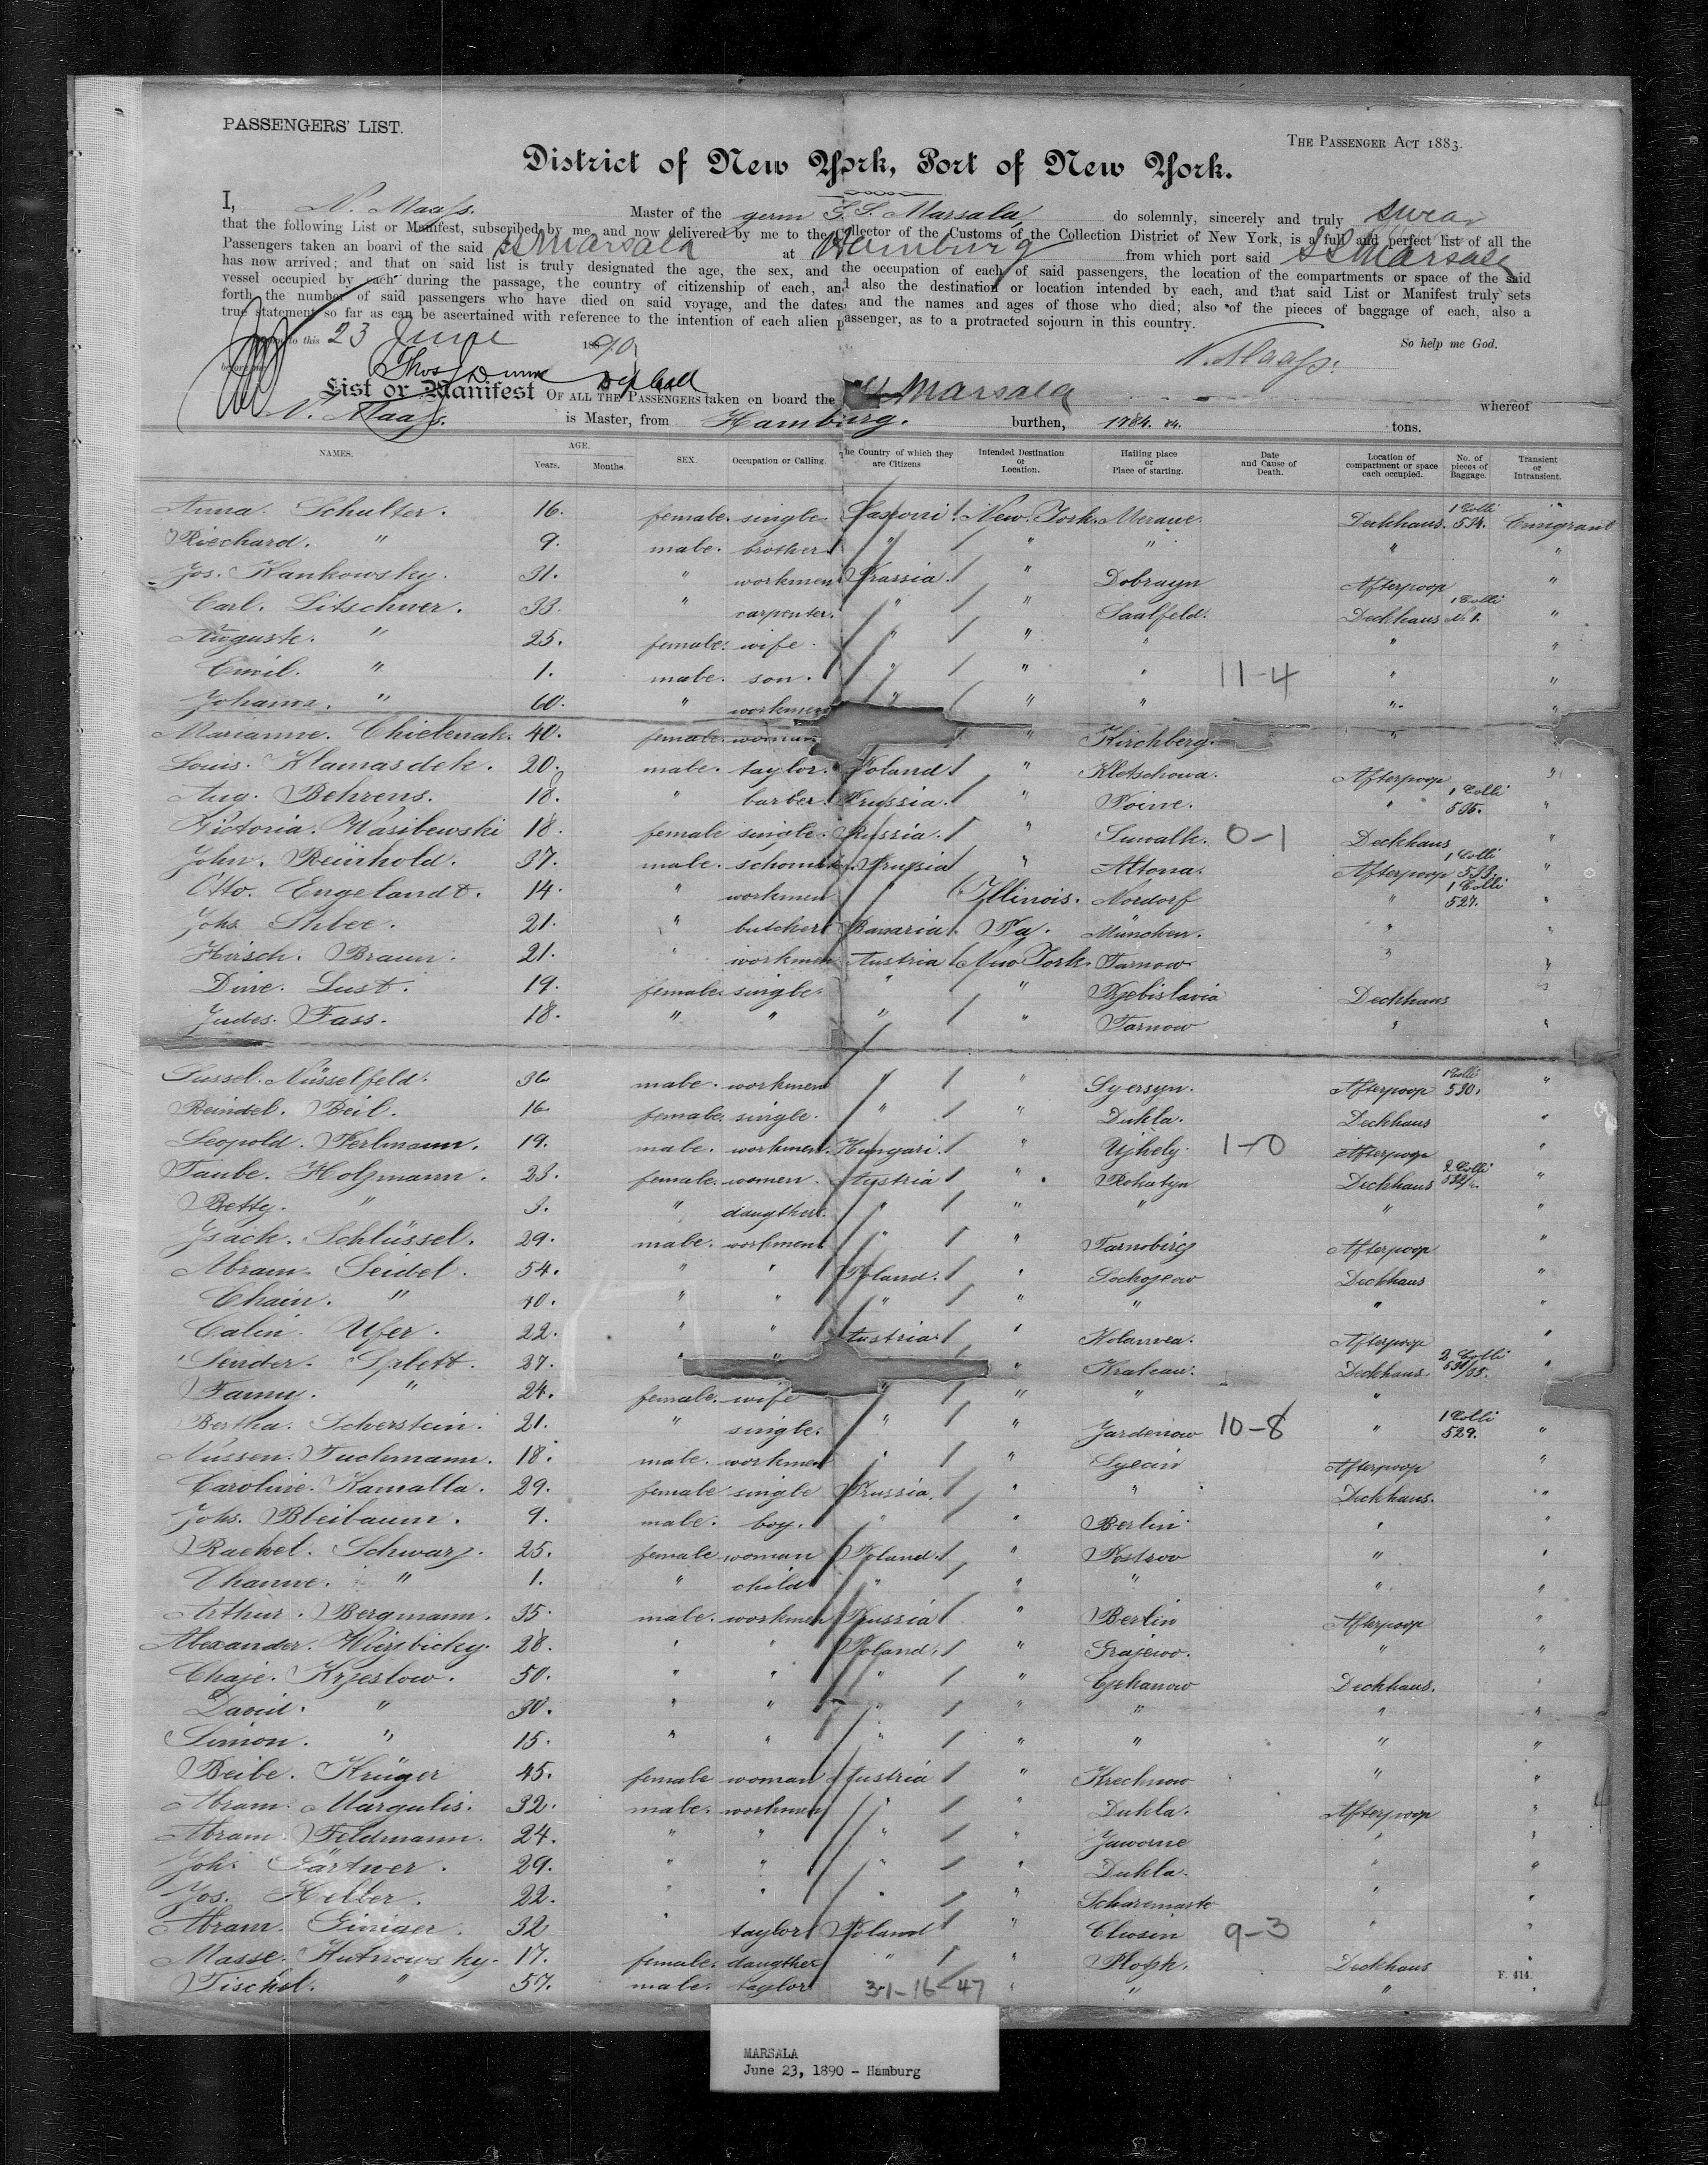 PASSENGERS' LIST.
THE PASSENGER ACT 1883.
District of New York, Port of New York.
I, N. Maass. Master of the germ S. S. Marsala do solemnly, sincerely and truly swear
that the following List or Manifest, subscribed by me, and now delivered by me to the Collector of the Customs of the Collection District of New York, is a full and perfect list of all the
Passengers taken an board of the said SS Marsala at Hamburg from which port said SS Marsala
has now arrived; and that on said list is truly designated the age, the sex, and the occupation of each of said passengers, the location of the compartments or space of the said
vessel occupied by each during the passage, the country of citizenship of each, and also the destination or location intended by each, and that said List or Manifest truly sets
forth the number of said passengers who have died on said voyage, and the dates and the names and ages of those who died; also of the pieces of baggage of each, also a
true statement so far as can be ascertained with reference to the intention of each alien passenger, as to a protracted sojourn in this country.
to this 23 June 1890 So help me God.
N. Maass.
Thos J Dunn Dep Coll
List or Manifest OF ALL THE PASSENGERS taken on board the SS Marsala whereof
N. Maass. is Master, from Hamburg. burthen, 1984. 84. tons.
NAMES. AGE. Years. Months. SEX. Occupation or Calling. The Country of which they are Citizens Intended Destination or Location. Hailing place or Place of starting. Date and Cause of Death. Location of compartment or space each occupied. No. of pieces of Baggage. Transient or Intransient.
Anna. Schulter. 16. female. single. New York. Merane. Deckhaus. 1 Colli 534. Emigrant
Riechard. " 9. male. brother " " " "
Jos. Kankowsky. 31. " workmen Prussia. " Dobrzyn Afterpoop "
Carl. Litschner. 33. " carpenter. " " Saalfeld. Deckhaus 1 Colli N 1. "
Auguste. " 25. female. wife. " " " " "
Emil. " 1. male. son. " " " 11-4 " "
Johanns. " 60. " workmen " " " " "
Marianne. Chielenak. 40. female. woman " Kirchberg. " "
Louis. Klamasdek. 20. male. taylor. Poland. " Kletschowa. Afterpoop "
Aug. Behrens. 18. " barber. Prussia. " Poine. " 1 Colli 535. "
Victoria. Wasilewski 18. female single. Russia. " Suwalk. 0-1 Deckhaus "
John. Reinhold. 37. male. Prussia " Altona. Afterpoop 1 Colli 533. "
Otto. Engelandt. 14. " workmen " Illinois. Nordorf " 1 Colli 527. "
Johs. 21. " butcher Bavaria. Pa. München. " "
Hirsch. Braun. 21. " workmen Austria New York. Tarnow " "
Dine. Lust. 19. female. single. " " Deckhaus "
Judes. Fass. 18. " " " " Tarnow " "
Sussel. Nüsselfeld. 36 male. workmen " " Afterpoop 1 Colli 530. "
Reindel. Beil. 16. female. single. " " Dukla. Deckhaus "
Leopold. Perlmann. 19. male. workmen. Hungari. " Ujhely. 1-0 Afterpoop "
Taube. Holzmann. 23. female. women. Austria " Rohatyn Deckhaus 2 Colli "
Betty. " 3. " daugther. " " " " "
Isack. Schlüssel. 29. male. workmen " " Tarnobirg Afterpoop "
Abram. Seidel. 54. " " Poland. " Sochojeow Deckhaus "
Chain. " 40. " " " " " " "
Calin. Ufer. 22. " " Austria. " Afterpoop "
Sinder. 27. " " " Krakau. Deckhaus. 2 Colli "
Fanny. " 24. female. wife " " " "
Bertha. Scherstein. 21. " single. " " Jardenow 10-8 " 1 Colli 529. "
Nussen. Tuchmann. 18. male. workmen " " Afterpoop "
Caroline. Kamalla. 29. female single Prussia. " " Deckhaus. "
Johs. Bleibaum. 9. male. boy. " " Berlin " "
Rachel. Schwarz. 25. female woman Poland. " Postrov " "
Channe. " 1. " child " " " " "
Arthur. Bergmann. 35. male. workmen Prussia " Berlin Afterpoop "
Alexander. Wierzbicky. 28. " " Poland. " Grajewo. " "
Chaje. Krzeslow. 50. " " " " Czekanow Deckhaus. "
David. " 30. " " " " " " "
Simon. " 15. " " " " " " "
Beibe. Krüger 45. female woman Austria " Krechnow " "
Abram. Margulis. 32. male. workmen " " Dukla. Afterpoop "
Abram. Feldmann. 24. " " " " Jaworne " "
Joh. Gärtner. 29. " " " " Dukla. " "
Jos. Keller. 22. " " " " " "
Abram. Giniger. 32 " taylor Poland " 9-3 " "
Masse. Kutnowsky. 17. female. daugther " " Plozk. Deckhaus "
Tischel. " 57. male. taylor 31-16-47 " " " "
F. 414.
MARSALA
June 23, 1890 - Hamburg